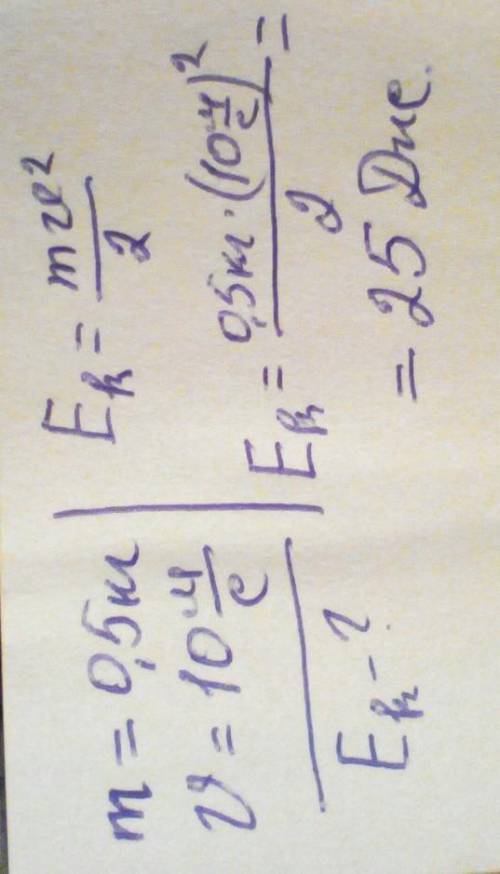 m = 0,5кг
v = 10 м/с
Eк - ?
Eк = mv²/2
Eк = 0,5кг·(10 м/с)²/2 =
= 25 Дж.